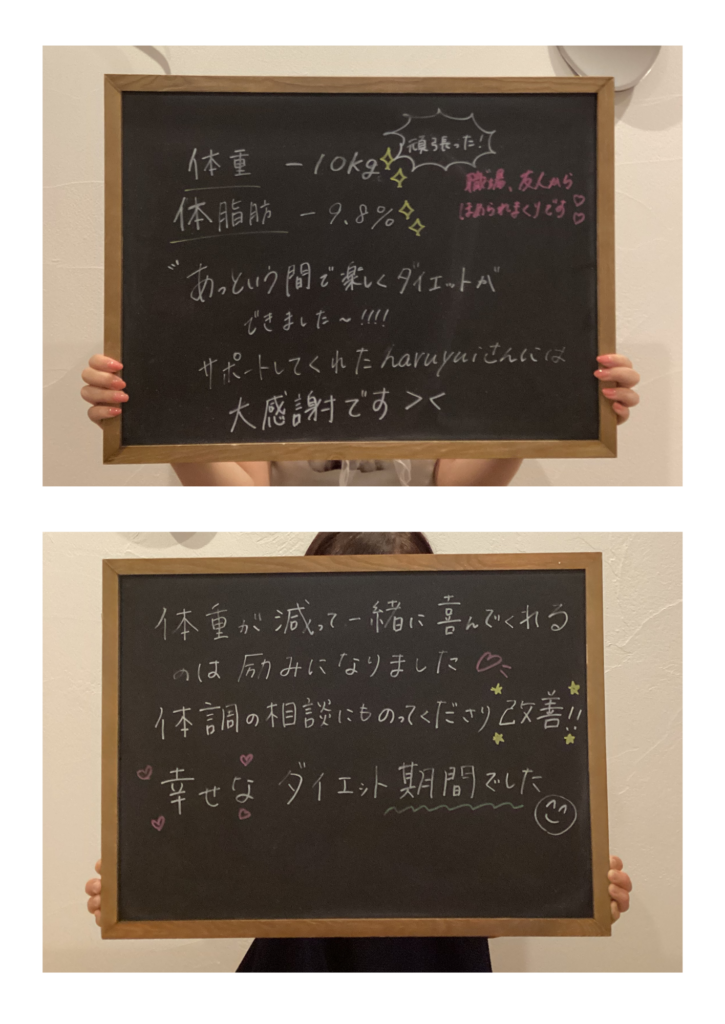 体重 -10kg
頑張った!
体脂肪 -9.8%
職場、友人から
ほめられまくりです♡♡
"あっという間で楽しくダイエットが
できました～!!!!
サポートしてくれたharuyuiさんには
大感謝です><
体重が減って一緒に喜んでくれる
のは励みになりました♡
体調の相談にものってくださり改善!!
幸せな ダイエット期間でした